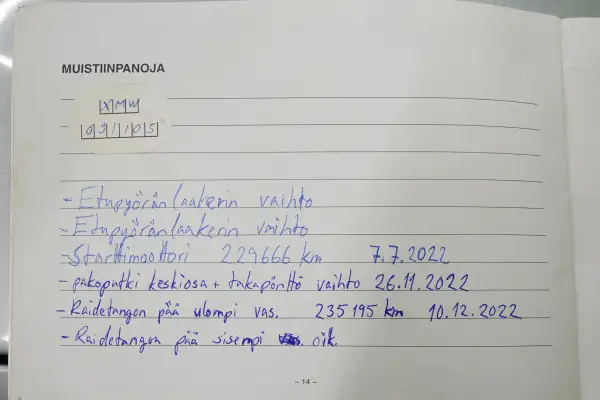 MUISTIINPANOJA
XMW
091105
- Etupyörän laakerin vaihto
- Etupyörän laakerin vaihto
- Starttimoottori 229666 km 7.7.2022
- pakoputki keskiosa + takapönttö vaihto 26.11.2022
- Raidetangon pää ulompi vas. 235195 km 10.12.2022
- Raidetangon pää sisempi oik.
- 14 -